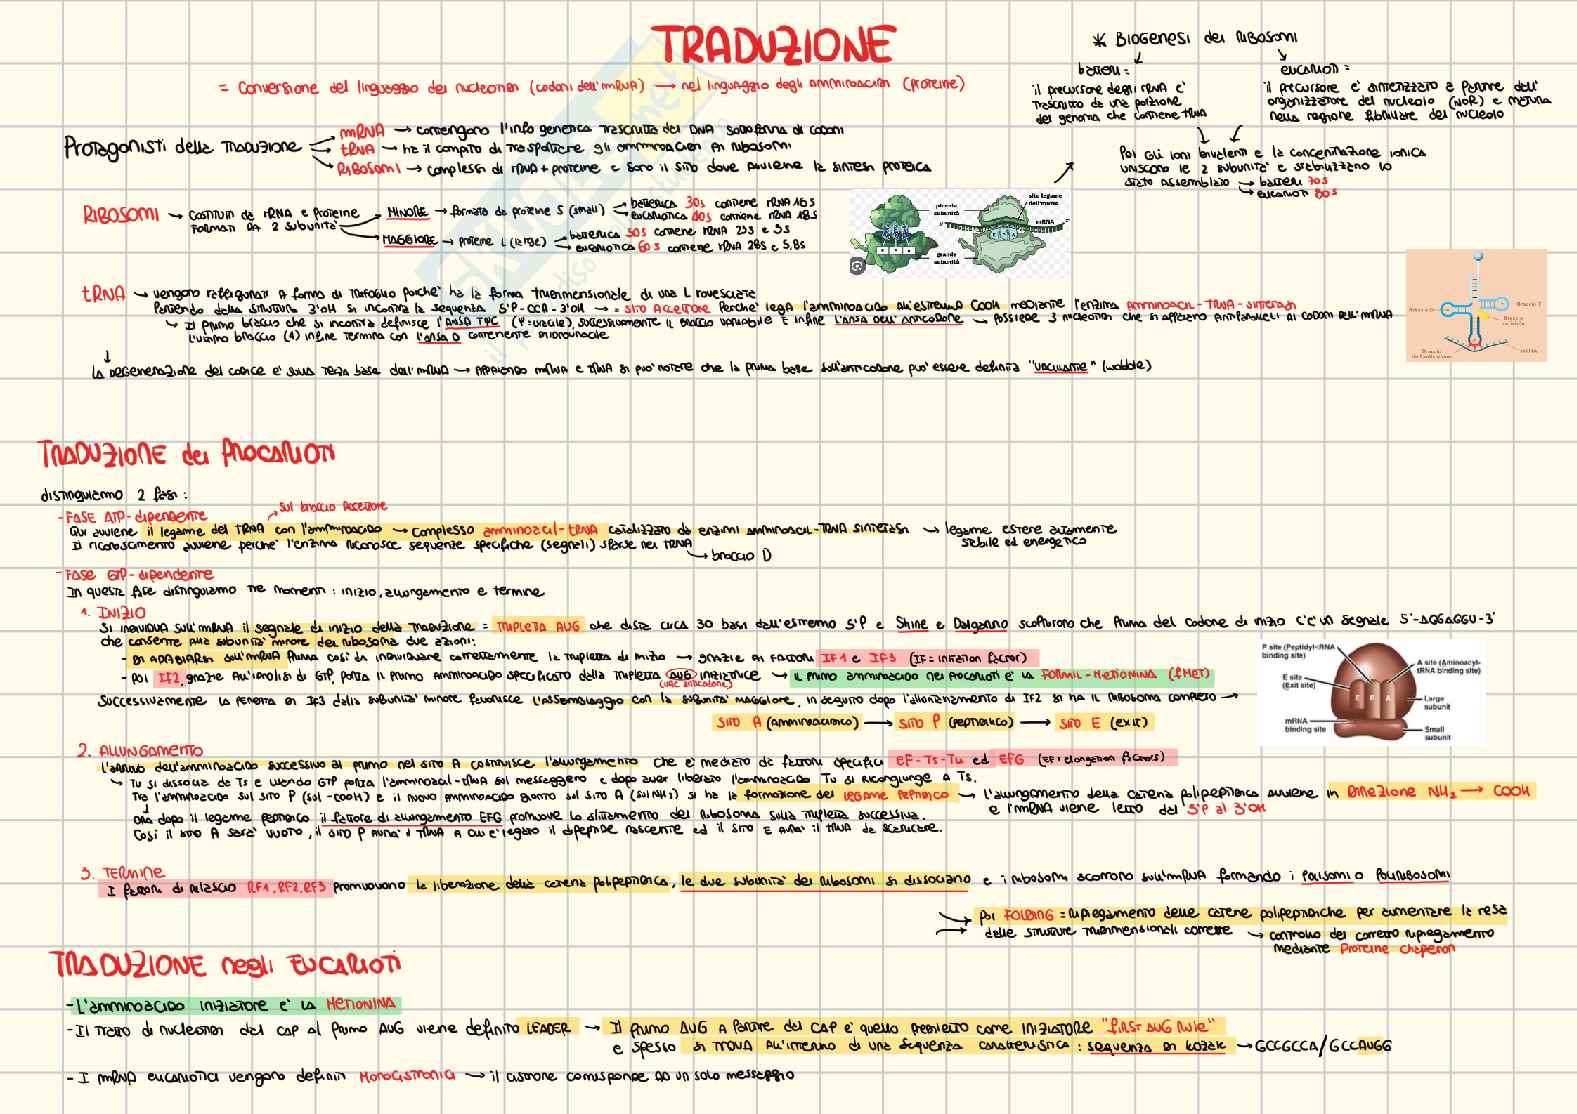 TRADUZIONE
= Conversione del linguaggio dei nucleotidi (codoni dell'mRNA) → nel linguaggio degli amminoacidi (proteine)
* Biogenesi dei Ribosomi
batteri:
il precursore degli rRNA è
trascritto da una porzione
del genoma che contiene tRNA
eucarioti =
il precursore è sintetizzato a partire dall'
organizzatore del nucleolo (NOR) e matura
nella regione fibrillare del nucleolo
Poi gli ioni bivalenti e la concentrazione ionica
uniscono le 2 subunità e stabilizzano lo
stato assemblato → batteri 70s
→ eucarioti 80s
Protagonisti della Traduzione
mRNA → contengono l'info genetica trascritta dal DNA sotto forma di codoni
tRNA → ha il compito di trasportare gli amminoacidi ai ribosomi
RIBOSOMI → complessi di rRNA + proteine e sono il sito dove avviene la sintesi proteica
RIBOSOMI → costituiti da rRNA e proteine
formati da 2 subunità
MINORE → formata da proteine S (small) → batterica 30s contiene rRNA 16s
→ eucariotica 40s contiene rRNA 18s
MAGGIORE → proteine L (large) → batterica 50s contiene rRNA 23s e 5s
→ eucariotica 60s contiene rRNA 28s e 5.8s
piccola subunità
grande subunità
sito legame dell'mRNA
mRNA
tRNA → vengono raffigurati a forma di trifoglio perché ha la forma tridimensionale di una L rovesciata
Partendo dalla struttura 3'OH si incontra la sequenza 5'P-CCA-3'OH → = sito accettore perché lega l'amminoacido all'estremo COOH mediante l'enzima amminoacil-tRNA-sintetasi
↳ Il primo braccio che si incontra definisce l'ansa TΨC (Ψ=uracile), successivamente il braccio variabile e infine l'ansa dell'anticodone → possiede 3 nucleotidi che si appaiano antiparalleli ai codoni dell'mRNA
L'ultimo braccio (4) infine termina con l'ansa D contenente diidrouracile
mRNA
↓
La degenerazione del codice è sulla terza base dell'mRNA → appaiando mRNA e tRNA si può notare che la prima base sull'anticodone può essere definita "vacillante" (wobble)
TRADUZIONE dei PROCARIOTI
distinguiamo 2 fasi:
- FASE ATP-dipendente
sul braccio accettore
Qui avviene il legame del tRNA con l'amminoacido → complesso amminoacil-tRNA catalizzato da enzimi amminoacil-tRNA sintetasi → legame estere altamente
stabile ed energetico
Il riconoscimento avviene perché l'enzima riconosce sequenze specifiche (segnali) sparse nei tRNA
→ braccio D
- FASE GTP-dipendente
In questa fase distinguiamo tre momenti: inizio, allungamento e termine
1. INIZIO
Si individua sull'mRNA il segnale di inizio della traduzione = TRIPLETTA AUG che dista circa 30 basi dall'estremo 5'P e Shine e Dalgarno scoprirono che prima del codone di inizio c'è un segnale 5'-AGGAGGU-3'
che consente alla subunità minore del ribosoma due azioni:
- di appaiarsi sull'mRNA prima così da individuare correttamente la tripletta di inizio → grazie ai fattori IF1 e IF3 (IF= initiation factor)
- poi IF2, grazie all'idrolisi di GTP, porta il primo amminoacido specificato dalla tripletta AUG iniziatrice → il primo amminoacido nei procarioti è la FORMIL-METIONINA (fMET)
(UAC anticodone)
Successivamente la perdita di IF3 dalla subunità minore favorisce l'assemblaggio con la subunità maggiore, in seguito dopo l'allontanamento di IF2 si ha il ribosoma completo →
SITO A (amminoacidico) → SITO P (peptidilico) → SITO E (exit)
P site (Peptidyl-tRNA
binding site)
A site (Aminoacyl-
tRNA binding site)
E site
(Exit site)
E P A
Large
subunit
mRNA
binding site
Small
subunit
2. ALLUNGAMENTO
L'arrivo dell'amminoacido successivo al primo nel sito A costituisce l'allungamento che è mediato da fattori specifici EF-Ts-Tu ed EFG (EF = elongation factors)
↳ Tu si dissocia da Ts e usando GTP porta l'amminoacil-tRNA sul messaggero e dopo aver liberato l'amminoacido Tu si ricongiunge a Ts.
Tra l'amminoacido sul sito P (sul -COOH) e il nuovo amminoacido giunto sul sito A (sul NH2) si ha la formazione del LEGAME PEPTIDICO → l'allungamento della catena polipeptidica avviene in DIREZIONE NH2 → COOH
e l'mRNA viene letto dal 5'P al 3'OH
Ora dopo il legame peptidico il fattore di allungamento EFG promuove lo slittamento del ribosoma sulla tripletta successiva.
Così il sito A sarà vuoto, il sito P avrà il tRNA a cui è legato il dipeptide nascente ed il sito E avrà il tRNA da scaricare.
3. TERMINE
I fattori di rilascio RF1, RF2, RF3 promuovono la liberazione della catena polipeptidica, le due subunità dei ribosomi si dissociano e i ribosomi scorrono sull'mRNA formando i polisomi o poliribosomi
Poi FOLDING = ripiegamento delle catene polipeptidiche per aumentare la resa
delle strutture tridimensionali corrette → controllo del corretto ripiegamento
mediante Proteine chaperon
TRADUZIONE negli EUCARIOTI
- L'amminoacido iniziatore è la METIONINA
- Il tratto di nucleotidi dal cap al primo AUG viene definito LEADER → Il primo AUG a partire dal CAP è quello prediletto come INIZIATORE "first AUG rule"
e spesso si trova all'interno di una sequenza caratteristica: sequenza di Kozak → GCCGCCA/GCCAUGG
- I mRNA eucariotici vengono definiti Monocistronici → il cistrone corrisponde ad un solo messaggio